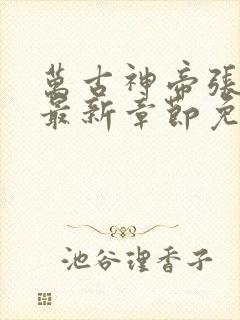 萬古神帝張
最新章節免
池谷理香子